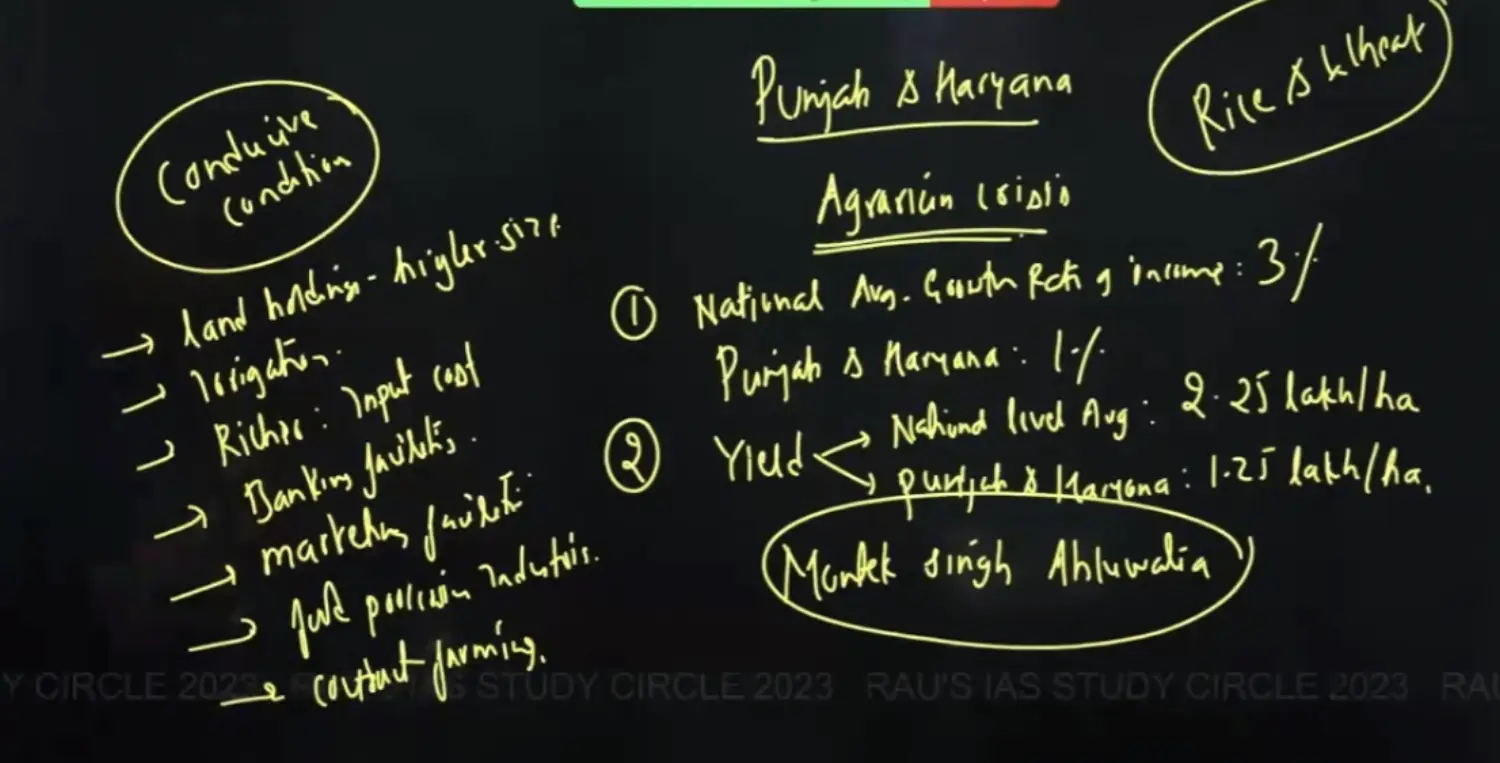 Punjab & Haryana
Rice & Wheat
Agrarian Crisis
① National Avg. Growth Rate of income: 3%
Punjab & Haryana: 1%
② Yield
→ National level Avg: 2.25 lakh/ha
→ Punjab & Haryana: 1.25 lakh/ha.
Montek Singh Ahluwalia
Conducive
Condition
→ Land holdings - higher size.
→ Irrigation.
→ Richer: Input cost
→ Banking facilities.
→ marketing facilities
→ food processing Industries.
→ contract farming.
Y CIRCLE 2023
STUDY CIRCLE 2023
RAU'S IAS STUDY CIRCLE 2023
RAU